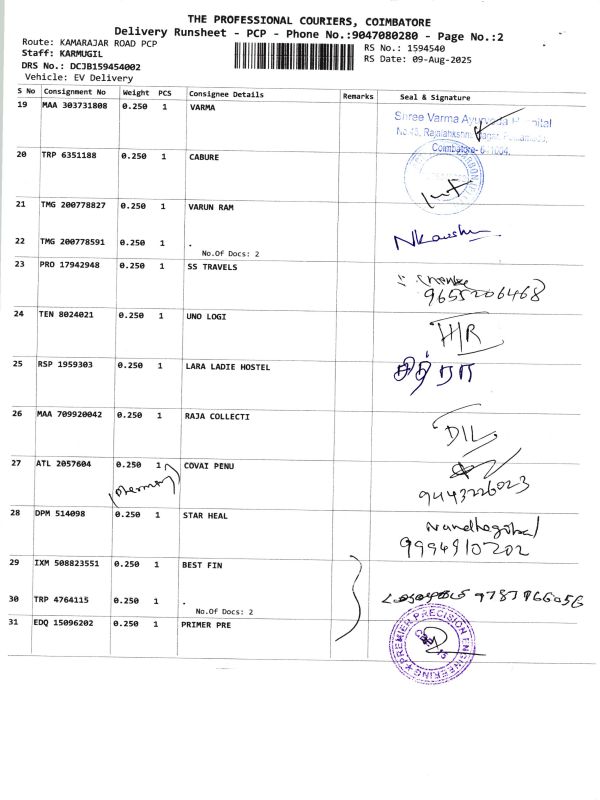 THE PROFESSIONAL COURIERS, COIMBATORE
Delivery Runsheet - PCP - Phone No.:9047080280 - Page No.:2
Route: KAMARAJAR ROAD PCP
Staff: KARMUGIL
DRS No.: DCJB159454002
Vehicle: EV Delivery
RS No.: 1594540
RS Date: 09-Aug-2025
S No Consignment No Weight PCS Consignee Details Remarks Seal & Signature
19 MAA 303731808 0.250 1 VARMA
Shree Varma Ayurveda Hospital
Coimbatore-
20 TRP 6351188 0.250 1 CABURE
21 TMG 200778827 0.250 1 VARUN RAM
22 TMG 200778591 0.250 1 .
No.Of Docs: 2
23 PRO 17942948 0.250 1 SS TRAVELS
9655206468
24 TEN 8024021 0.250 1 UNO LOGI
H/R
25 RSP 1959303 0.250 1 LARA LADIE HOSTEL
சித்ரா
26 MAA 709920042 0.250 1 RAJA COLLECTI
DIL
27 ATL 2057604 0.250 1 COVAI PENU
9443226023
28 DPM 514098 0.250 1 STAR HEAL
Nandhagopal
9994910202
29 IXM 508823551 0.250 1 BEST FIN
30 TRP 4764115 0.250 1 .
No.Of Docs: 2
9787966056
31 EDQ 15096202 0.250 1 PRIMER PRE
PREMIER PRECISION ENGINEERING